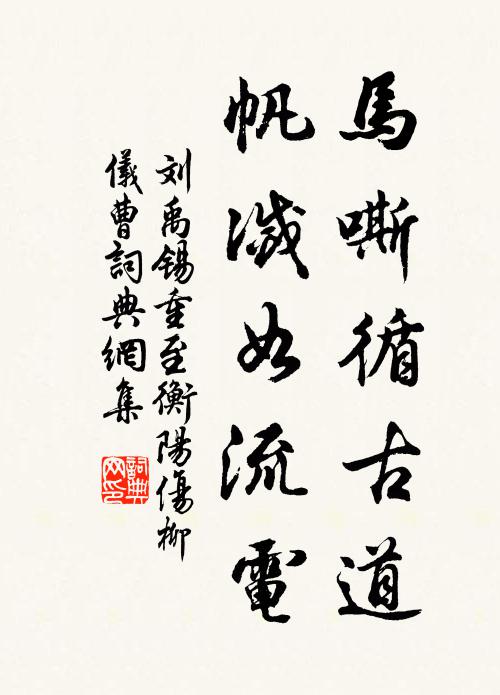 馬嘶循古道
帆滅如流電
刘禹錫重至衡陽傷柳
儀曹詞典網集
詞典
网印